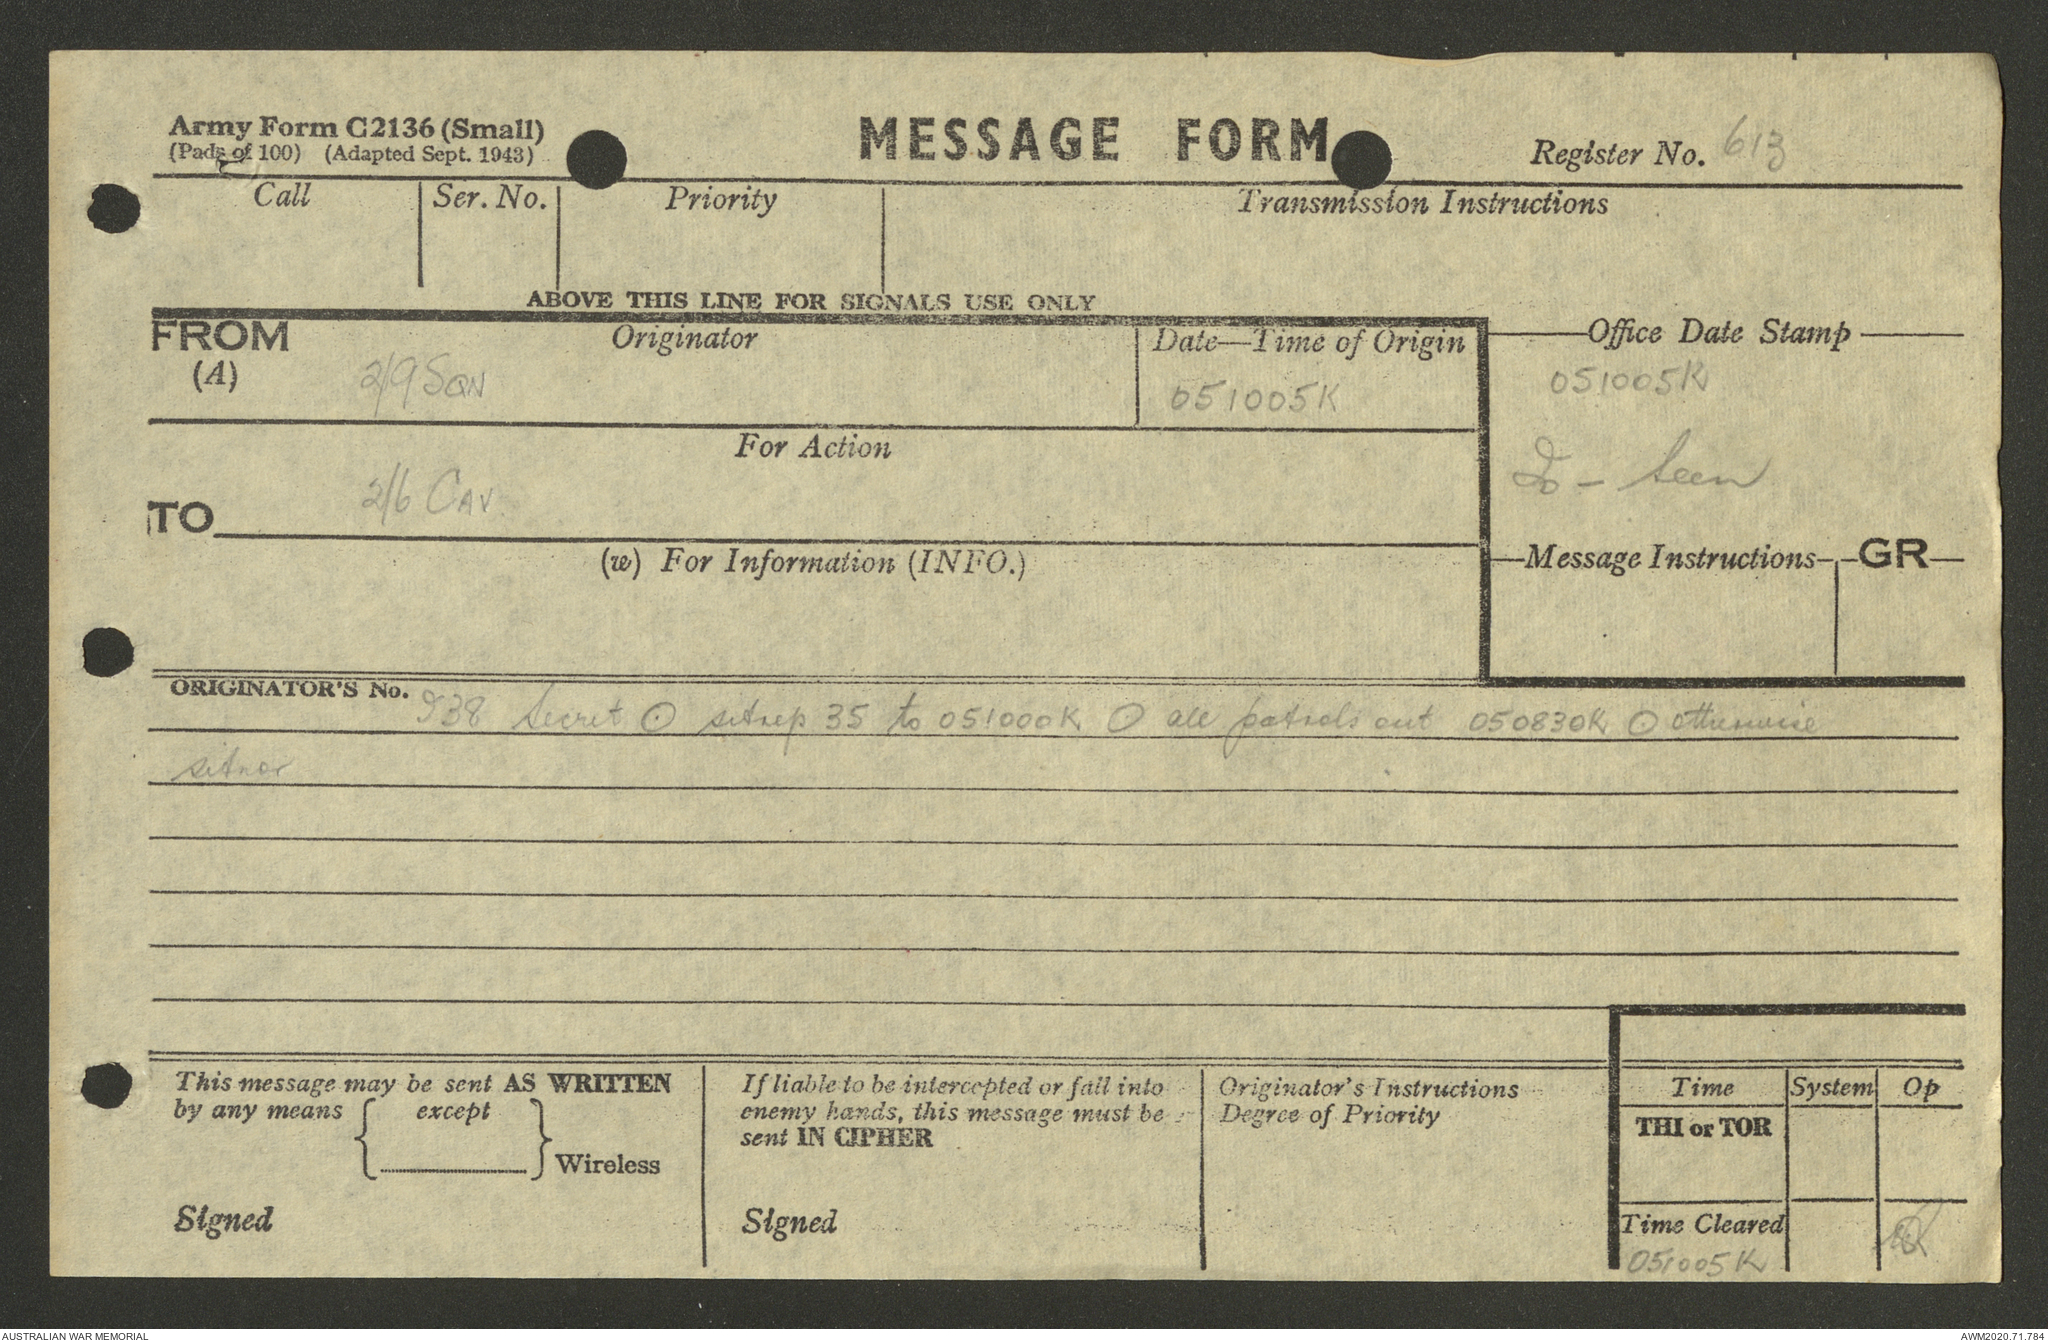 Army Form C2136 (Small)
(Pads of 100) (Adapted Sept. 1943)
MESSAGE FORM
Register No. 613
Call
Ser. No.
Priority
Transmission Instructions
ABOVE THIS LINE FOR SIGNALS USE ONLY
FROM
(A)
Originator
2/9 SQN
Date—Time of Origin
051005K
Office Date Stamp
051005K
For Action
TO
2/6 CAV
Io - Seen
(w) For Information (INFO.)
Message Instructions
GR
ORIGINATOR'S No.
938 Secret ⊙ sitrep 35 to 051000K ⊙ all patrols out 050830K ⊙ otherwise
sitnor
This message may be sent AS WRITTEN
by any means { except
} Wireless
Signed
If liable to be intercepted or fall into
enemy hands, this message must be
sent IN CIPHER
Signed
Originator's Instructions
Degree of Priority
Time
System
Op
THI or TOR
Time Cleared
051005K
AUSTRALIAN WAR MEMORIAL
AWM2020.71.784